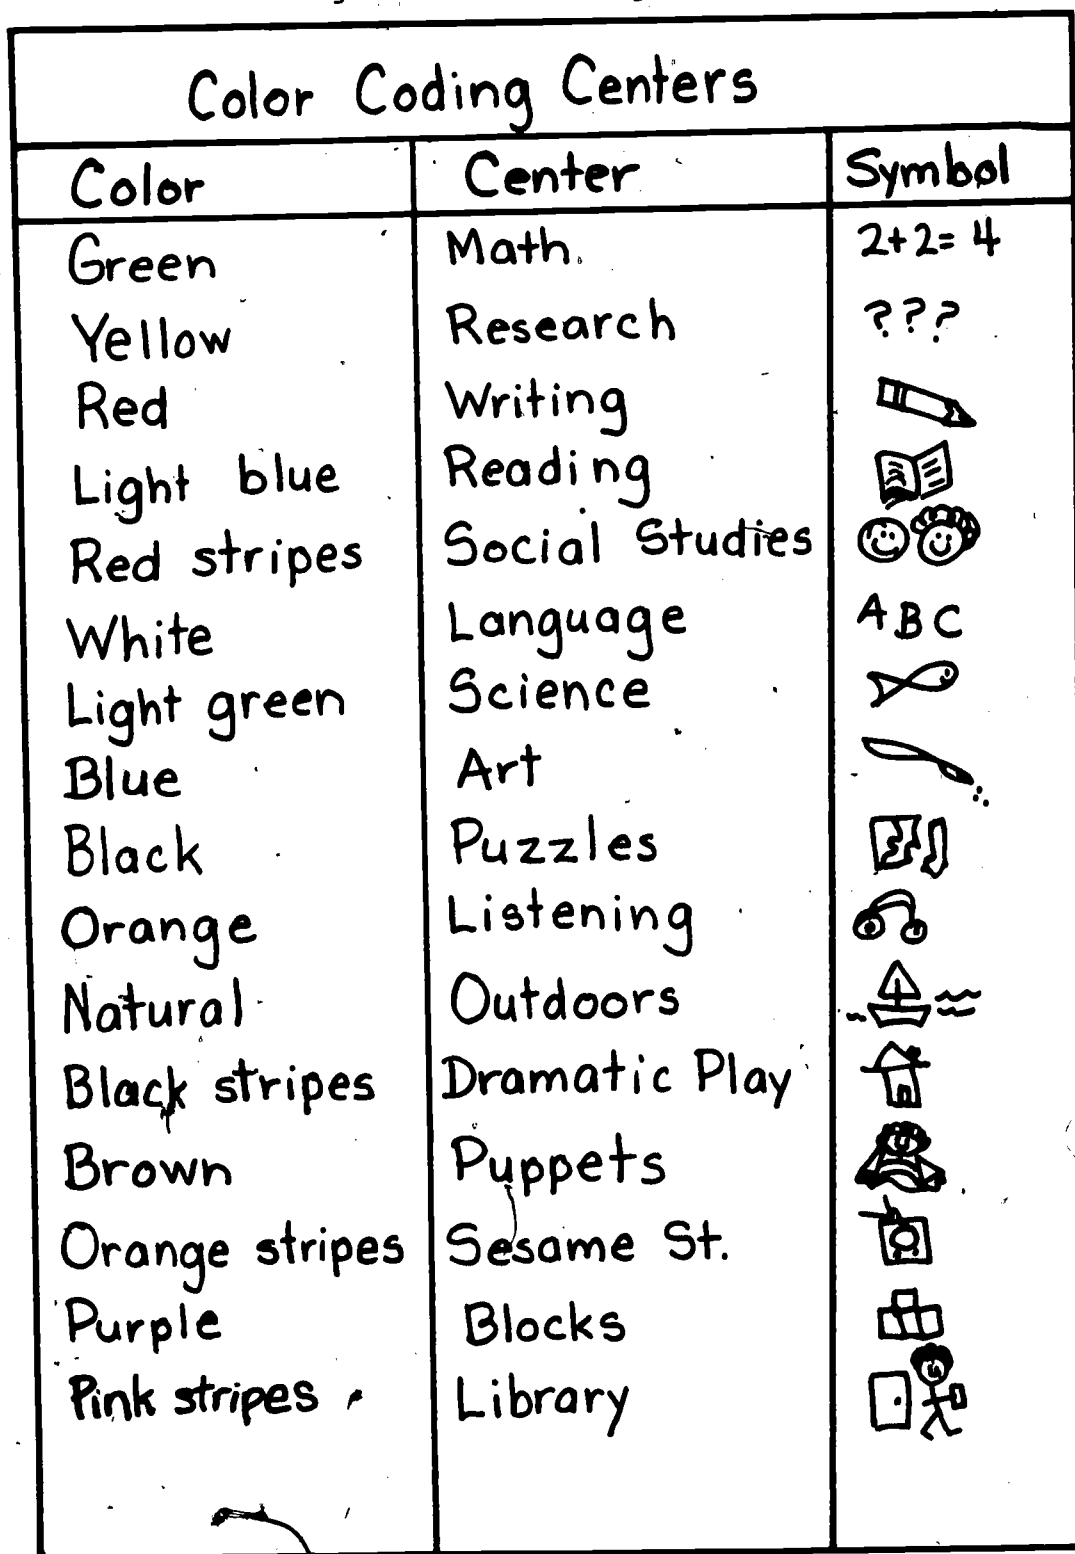 Color Coding Centers
Color Center Symbol
Green Math 2+2=4
Yellow Research ???
Red Writing
Light blue Reading
Red stripes Social Studies
White Language ABC
Light green Science
Blue Art
Black Puzzles
Orange Listening
Natural Outdoors
Black stripes Dramatic Play
Brown Puppets
Orange stripes Sesame St.
Purple Blocks
Pink stripes Library